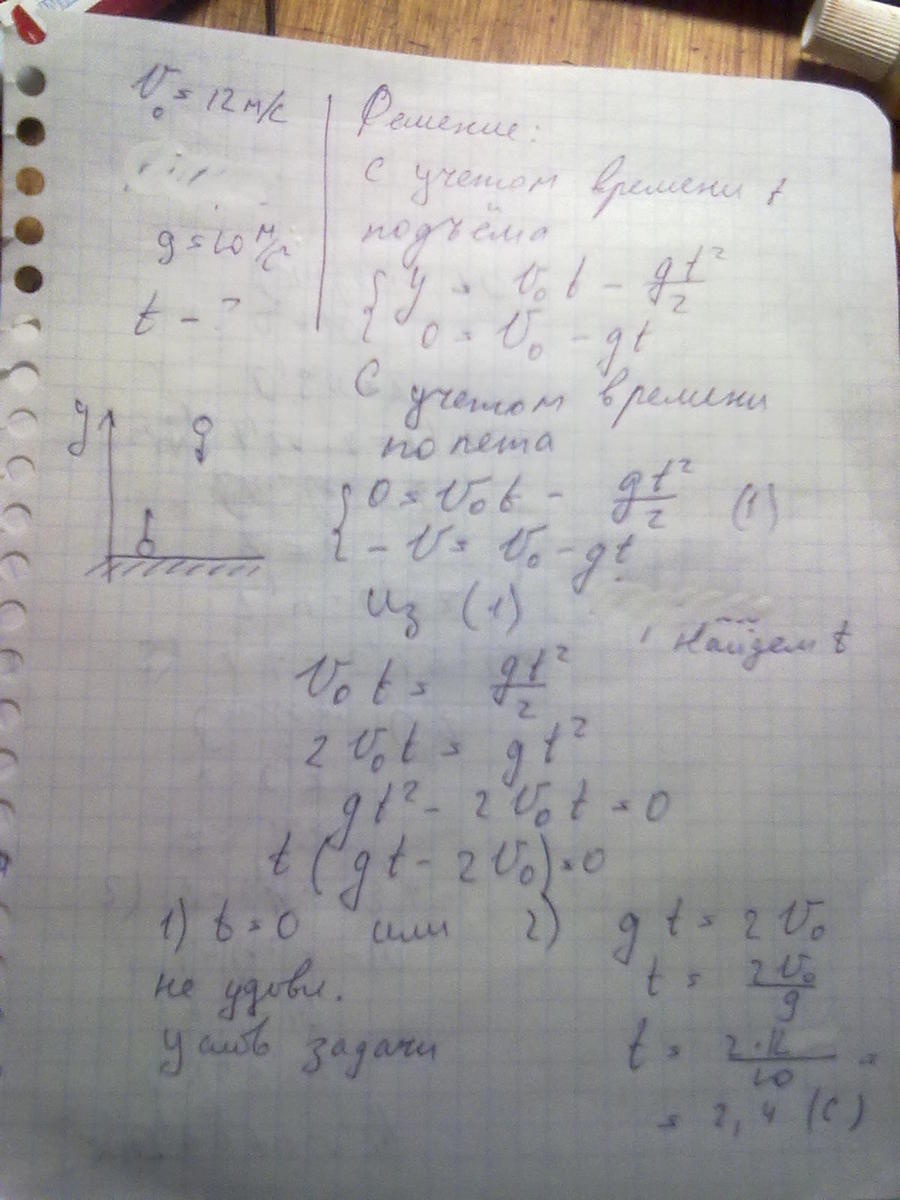 v₀ = 12 м/с
g = 10 м/с
t - ?
Решение:
С учетом времени t
подъёма
{ y = v₀t - gt²/2
{ 0 = v₀ - gt
С учетом времени
полета
{ 0 = v₀t - gt²/2 (1)
{ - v = v₀ - gt
y g
Из (1) найдем t
v₀t = gt²/2
2v₀t = gt²
gt² - 2v₀t = 0
t(gt - 2v₀) = 0
1) t = 0 или 2) gt = 2v₀
не удовл. t = 2v₀/g
условь задачи t = 2·12/10 =
= 2,4 (с)